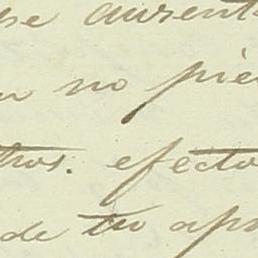 se ausent
no pier
hos. efecto
de tu apr